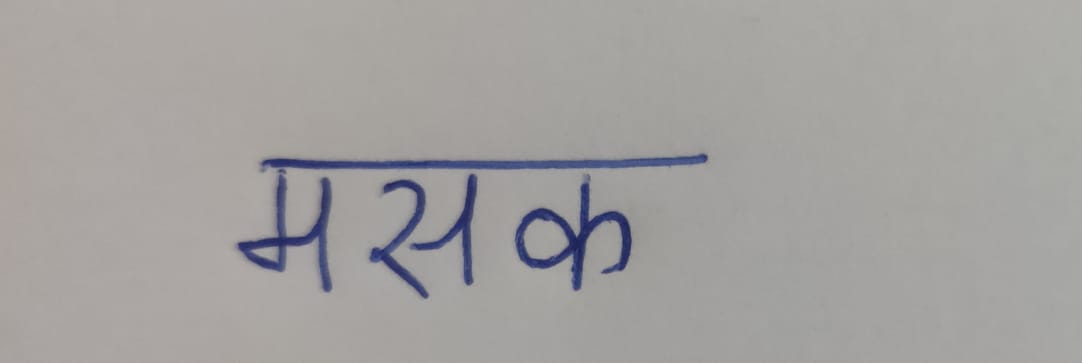 मसक